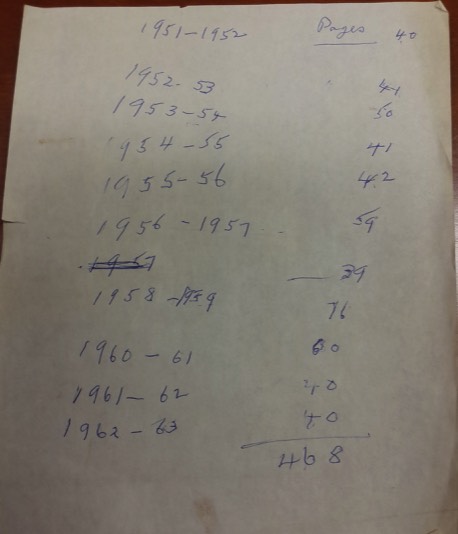 1951-1952 Pages 40
1952-53 41
1953-54 50
1954-55 41
1955-56 42
1956-1957 59
39
1958-1959 76
1960-61 60
1961-62 40
1962-63 40
468